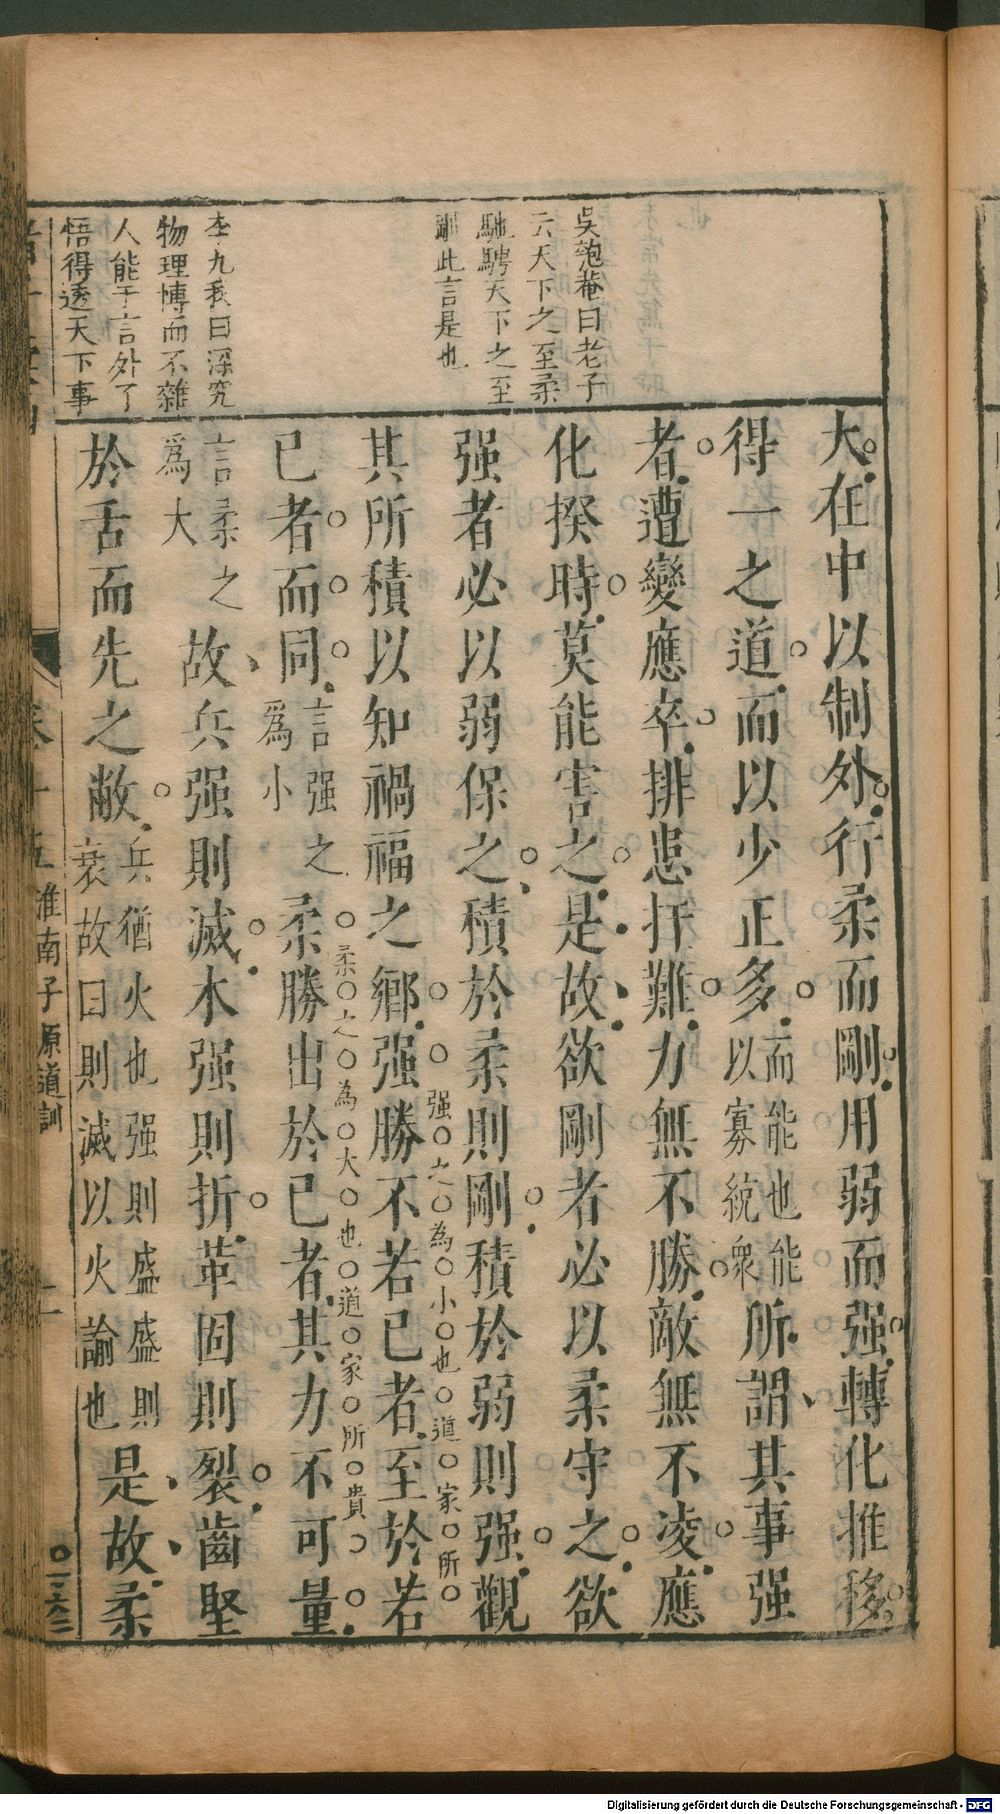 吳匏菴曰老子
云天下之至柔
馳騁天下之至
剛此言是也
李九我曰深究
物理博而不雜
人能于言外了
悟得透天下事
大在中以制外行柔而剛用弱而强轉化推移
得一之道而以少正多而能也能以寡統衆所謂其事强
者遭變應卒排患扞難力無不勝敵無不凌應
化揆時莫能害之是故欲剛者必以柔守之欲
强者必以弱保之積於柔則剛積於弱則强觀
强之為小也道家所
其所積以知禍福之鄉强勝不若已者至於若
柔之為大也道家所貴
已者而同言强之為小柔勝出於已者其力不可量
言柔之為大故兵强則滅木强則折革固則裂齒堅
於舌而先之敝兵猶火也强則盛盛則衰故曰則滅以火諭也是故柔
淮南子原道訓
Digitalisierung gefördert durch die Deutsche Forschungsgemeinschaft - DFG